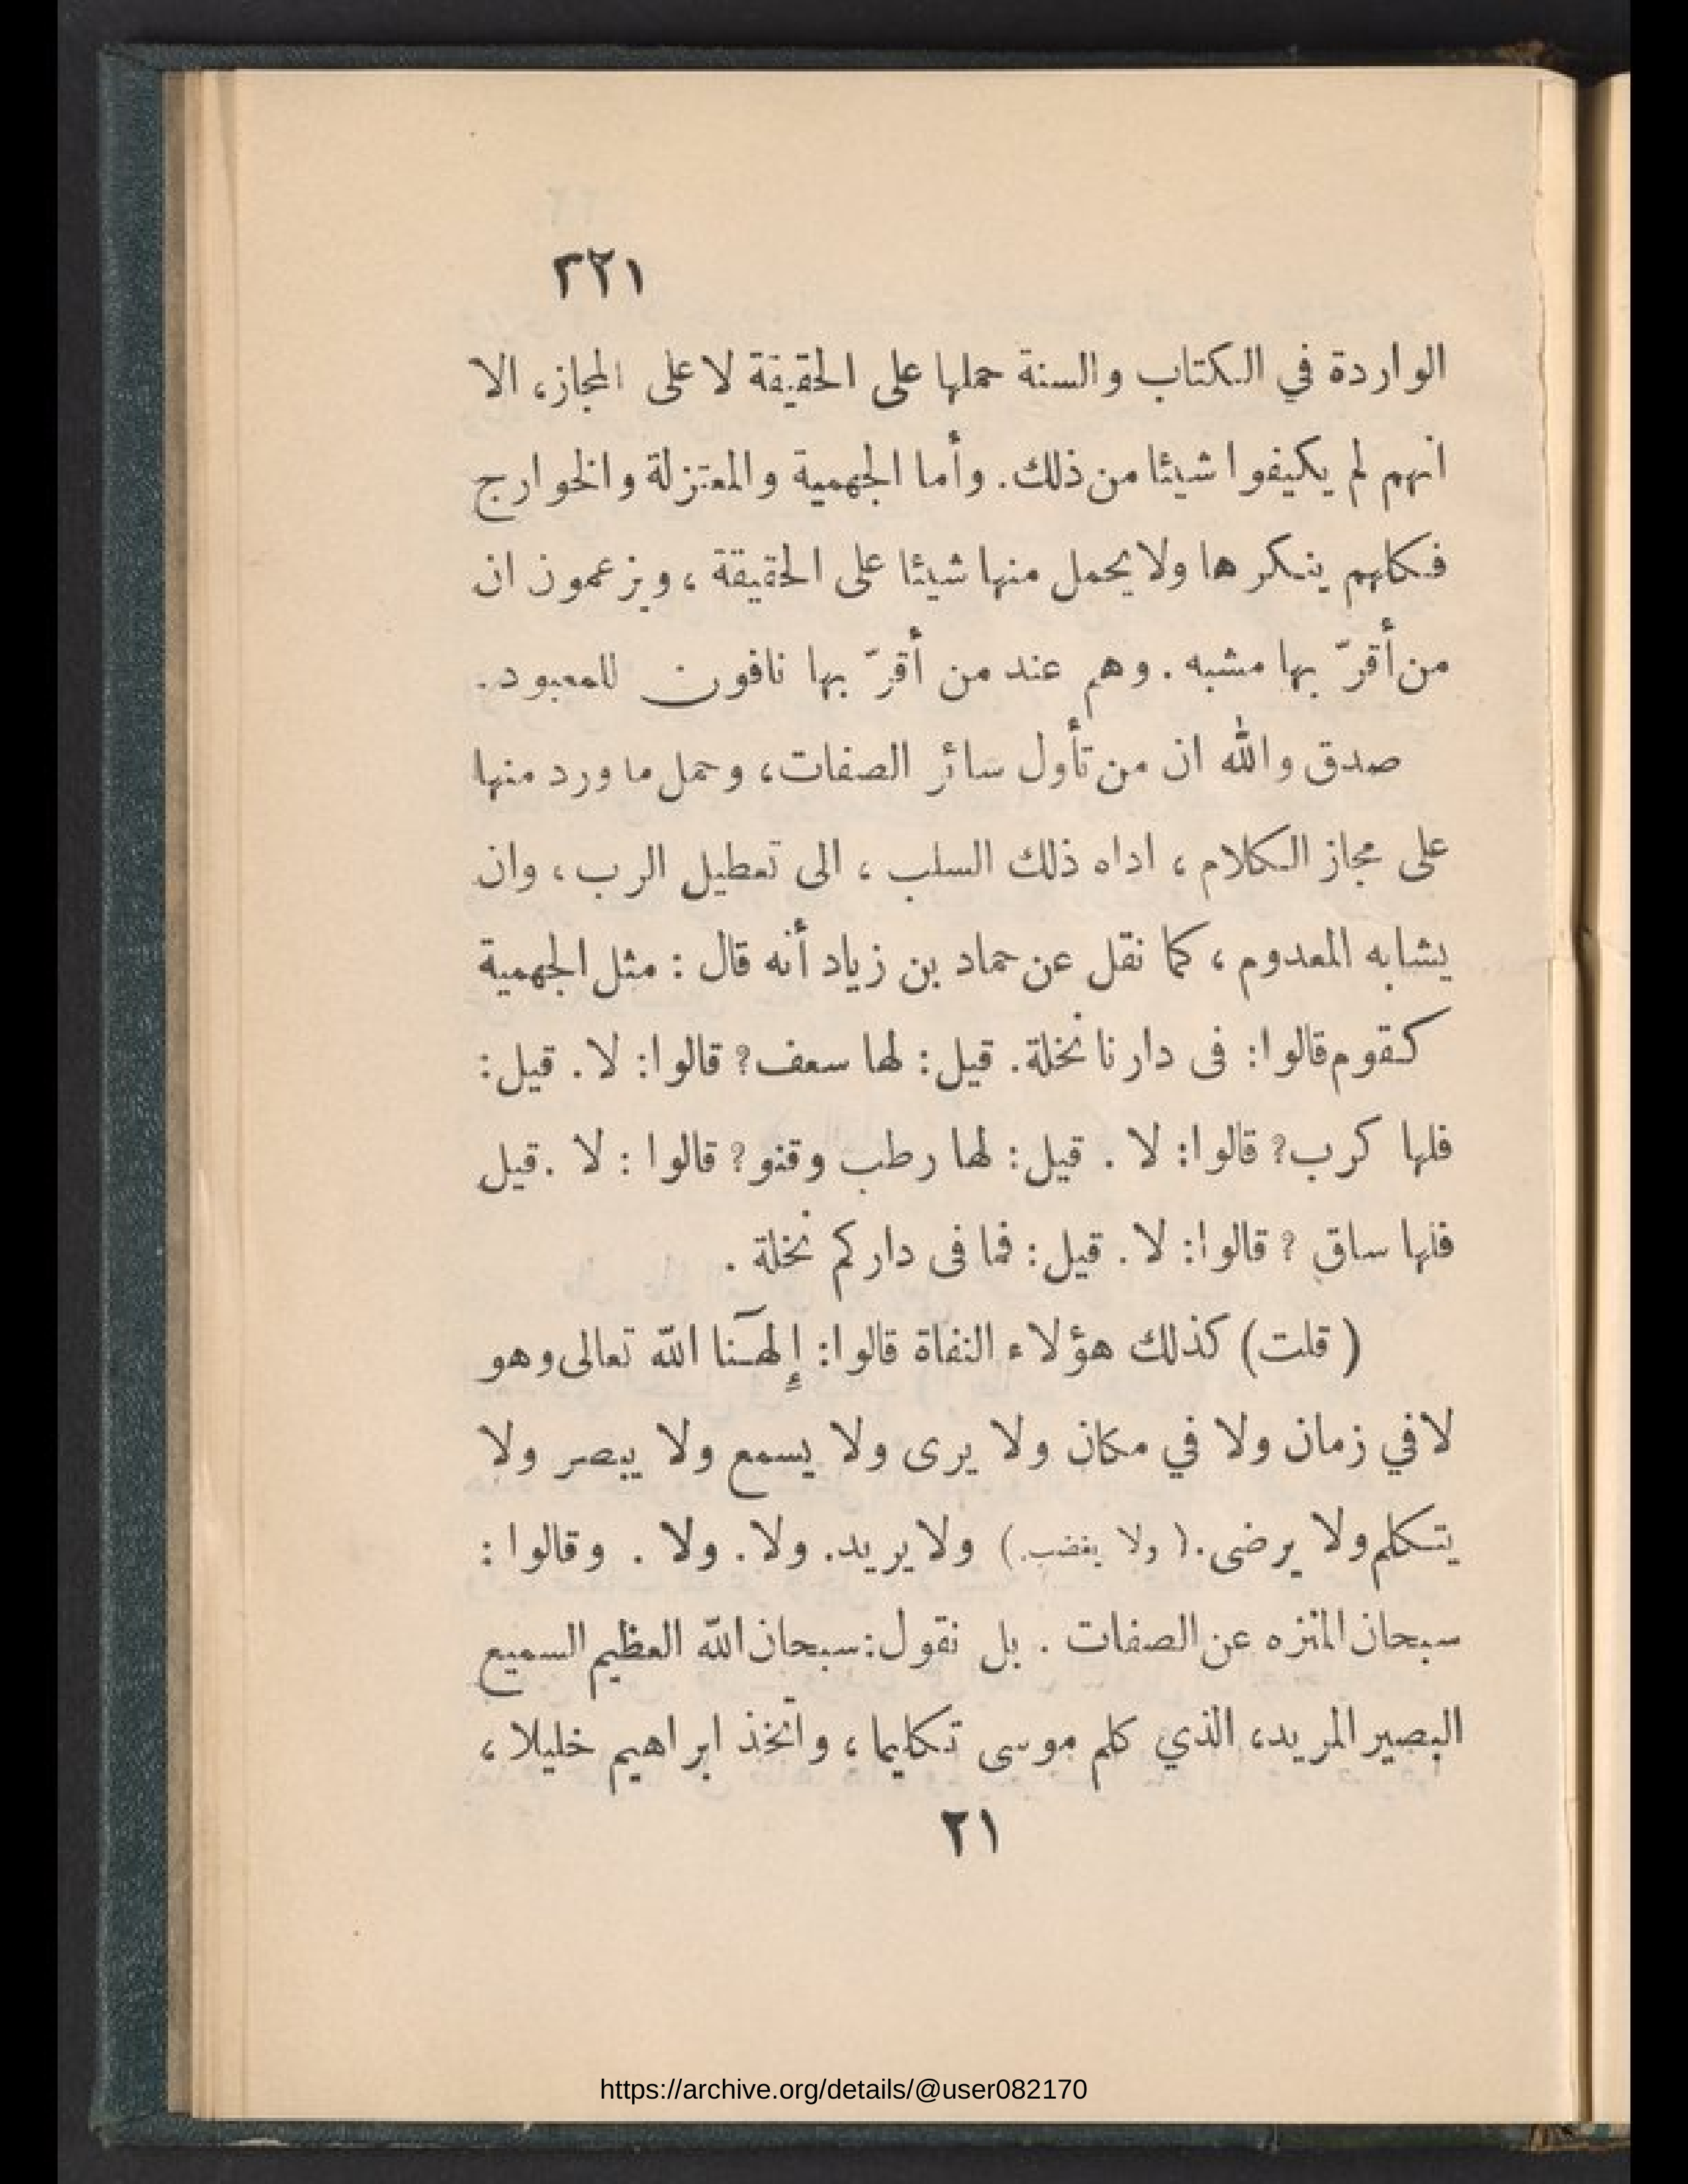 ٣٢١
الواردة في الكتاب والسنة حملها على الحقيقة لا على المجاز، الا
انهم لم يكيفوا شيئا من ذلك. وأما الجهمية والمعتزلة والخوارج
فكلهم ينكرها ولا يحمل منها شيئا على الحقيقة، ويزعمون ان
من أقرّ بها مشبه. وهم عند من أقرّ بها نافون للمعبود.
صدق والله ان من تأول سائر الصفات، وحمل ما ورد منها
على مجاز الكلام، اداه ذلك السلب، الى تعطيل الرب، وان
يشابه المعدوم، كما نقل عن حماد بن زياد أنه قال: مثل الجهمية
كقوم قالوا: فى دارنا نخلة. قيل: لها سعف؟ قالوا: لا. قيل:
فلها كرب؟ قالوا: لا. قيل: لها رطب وقنو؟ قالوا: لا. قيل
فلها ساق؟ قالوا: لا. قيل: فما فى داركم نخلة.
(قلت) كذلك هؤلاء النفاة قالوا: إلهنا الله تعالى وهو
لا في زمان ولا في مكان ولا يرى ولا يسمع ولا يبصر ولا
يتكلم ولا يرضى. (ولا يغضب.) ولا يريد. ولا. ولا. وقالوا:
سبحان المنزه عن الصفات. بل نقول: سبحان الله العظيم السميع
البصير المريد، الذي كلم موسى تكليما، واتخذ ابراهيم خليلا،
٢١
https://archive.org/details/@user082170